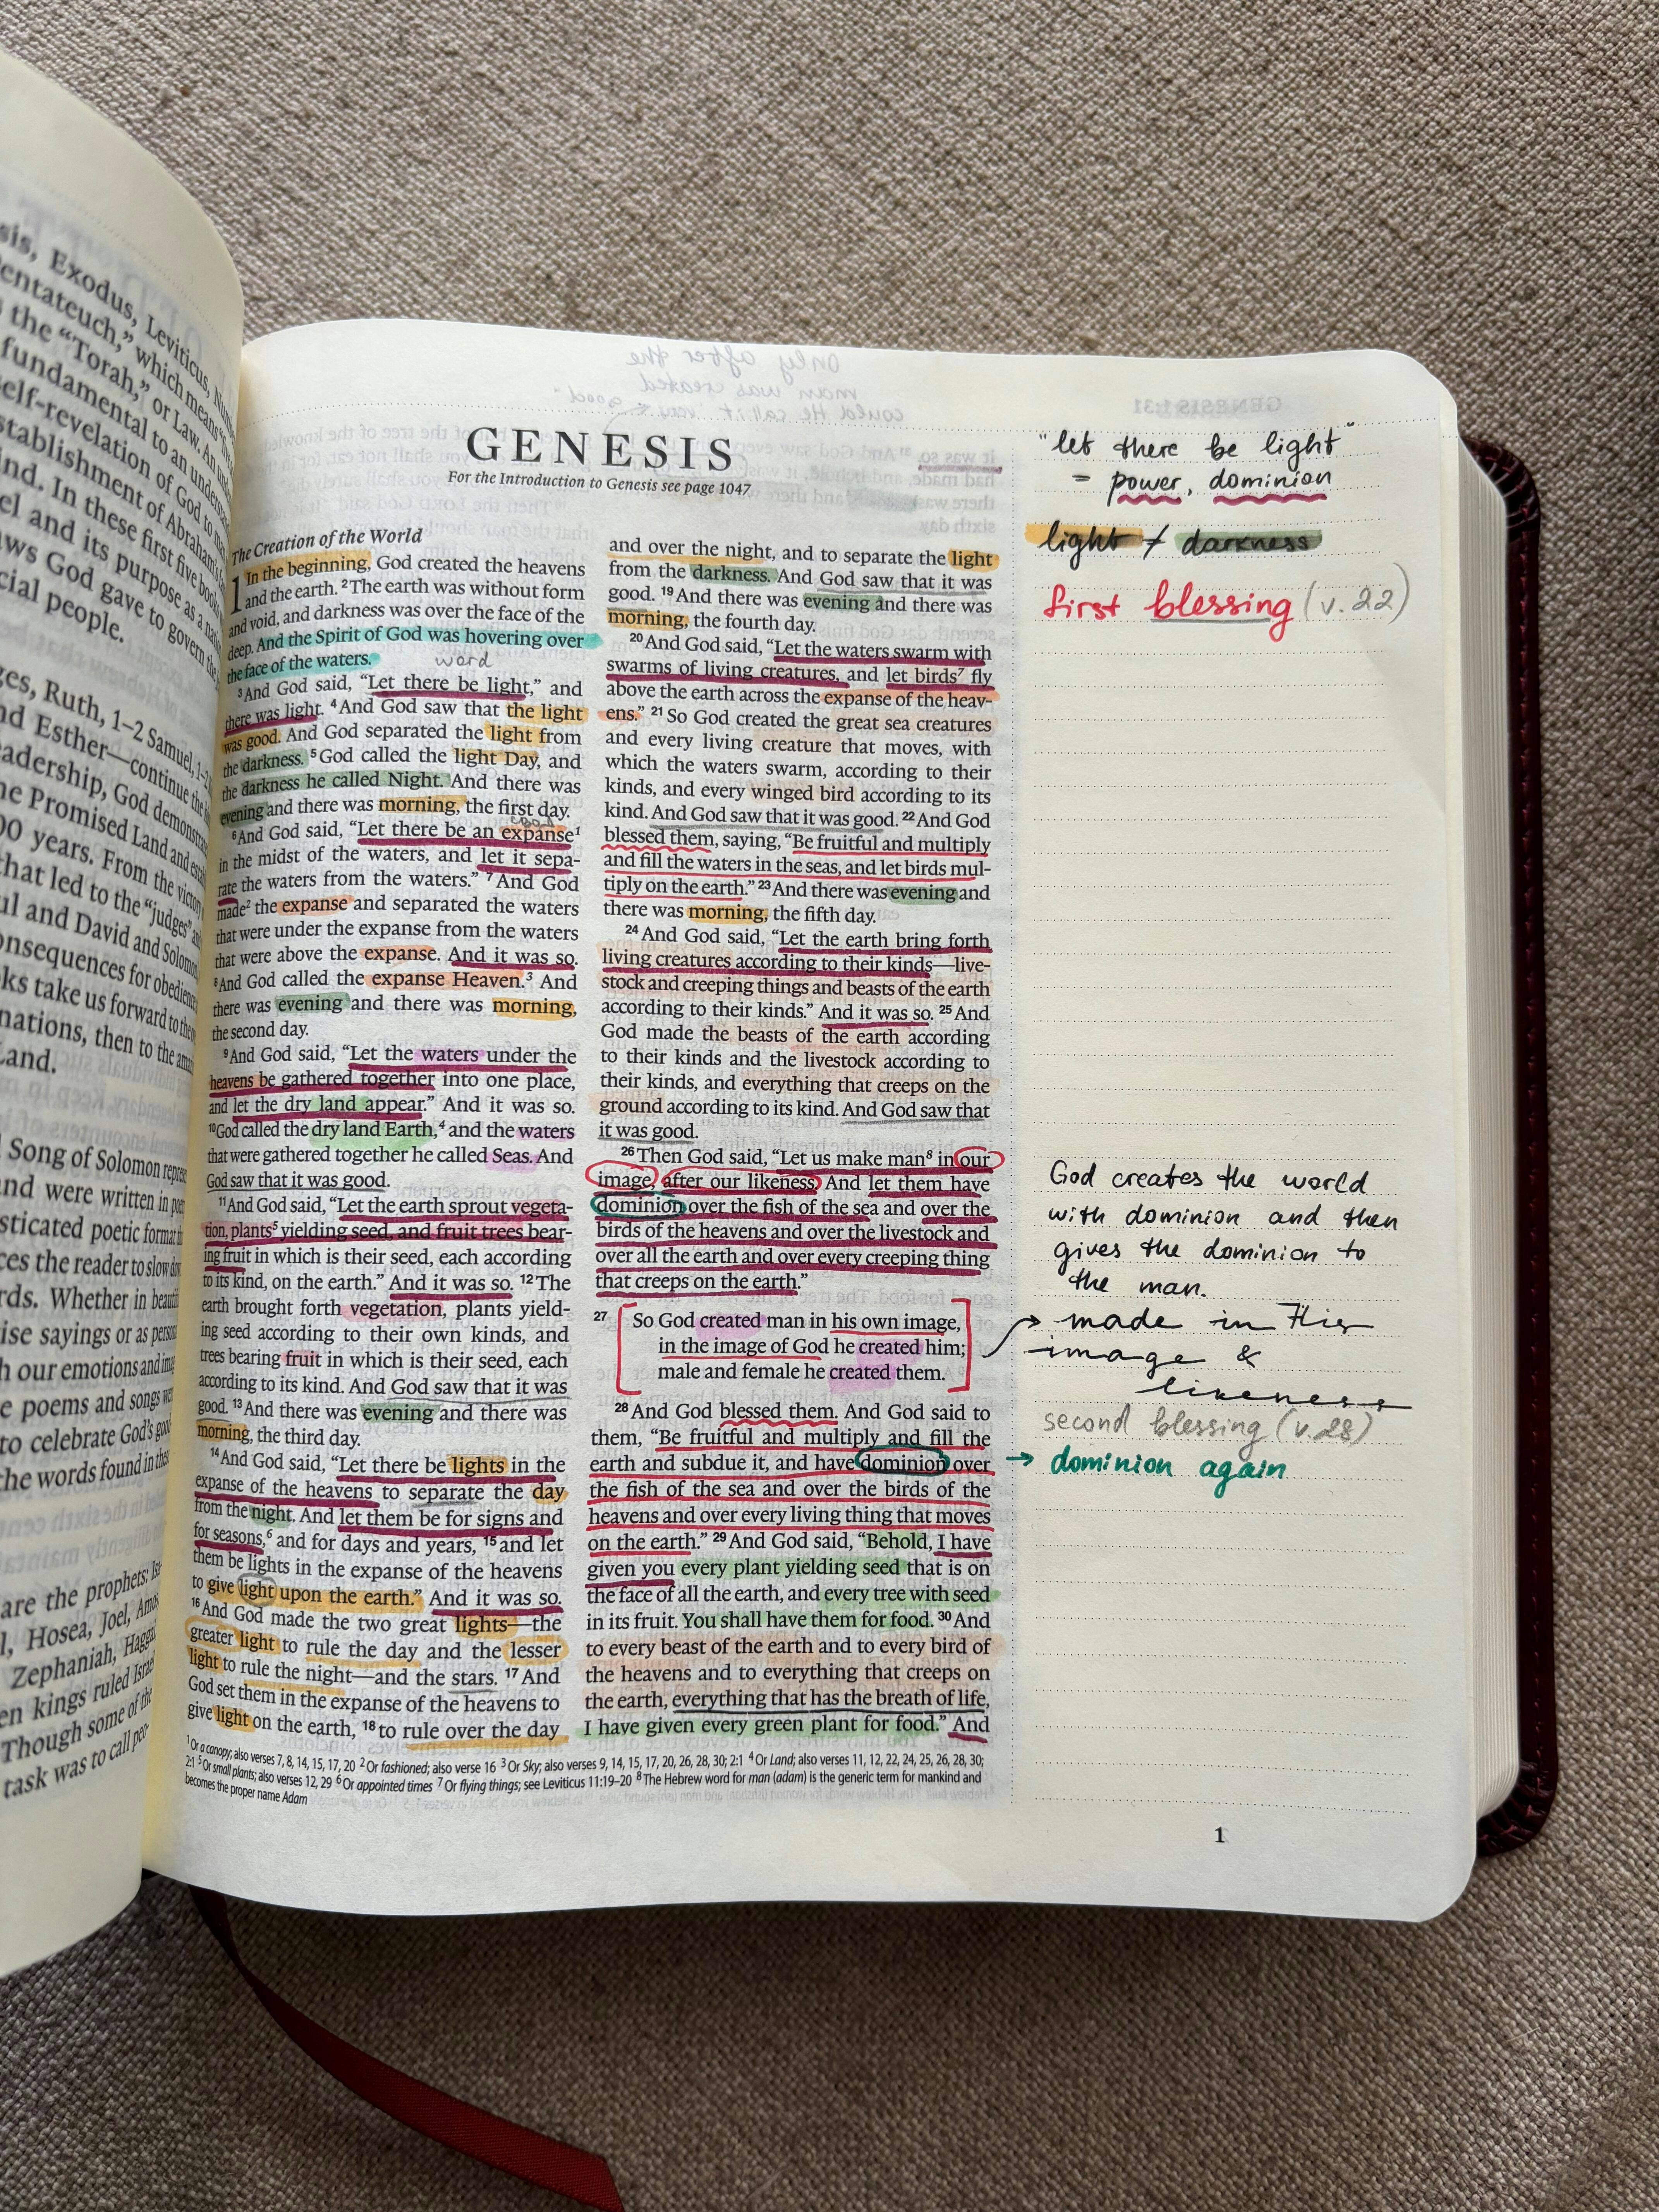 sis, Exodus, Leviticus, Num
entateuch," which means "
the "Torah," or Law. An
fundamental to an under
self-revelation of God to man
stablishment of Abraham's
ind. In these first five books
el and its purpose as a nat
ws God gave to govern the
cial people.
ges, Ruth, 1–2 Samuel, 1–2
nd Esther—continue the
adership, God demonstr
he Promised Land and
00 years. From the victory
that led to the "judges"
ul and David and Solomon
onsequences for obedien
ks take us forward to the
nations, then to the
Land.
Song of Solomon
nd were written in
sticated poetic format
ces the reader to slow
rds. Whether in
ise sayings or as
h our emotions and
e poems and songs
to celebrate God's
he words found in
are the prophets:
l, Hosea, Joel, Amos
Zephaniah,
en kings ruled Israel
Though some of the
task was to call
GENESIS
For the Introduction to Genesis see page 1047
The Creation of the World
1 In the beginning, God created the heavens
and the earth. 2 The earth was without form
and void, and darkness was over the face of the
deep. And the Spirit of God was hovering over
the face of the waters.
word
3 And God said, “Let there be light,” and
there was light. 4 And God saw that the light
was good. And God separated the light from
the darkness. 5 God called the light Day, and
the darkness he called Night. And there was
evening and there was morning, the first day.
6 And God said, “Let there be an expanse1
in the midst of the waters, and let it sepa-
rate the waters from the waters.” 7 And God
made2 the expanse and separated the waters
that were under the expanse from the waters
that were above the expanse. And it was so.
8 And God called the expanse Heaven.3 And
there was evening and there was morning,
the second day.
9 And God said, “Let the waters under the
heavens be gathered together into one place,
and let the dry land appear.” And it was so.
10 God called the dry land Earth,4 and the waters
that were gathered together he called Seas. And
God saw that it was good.
11 And God said, “Let the earth sprout vegeta-
tion, plants5 yielding seed, and fruit trees bear-
ing fruit in which is their seed, each according
to its kind, on the earth.” And it was so. 12 The
earth brought forth vegetation, plants yield-
ing seed according to their own kinds, and
trees bearing fruit in which is their seed, each
according to its kind. And God saw that it was
good. 13 And there was evening and there was
morning, the third day.
14 And God said, “Let there be lights in the
expanse of the heavens to separate the day
from the night. And let them be for signs and
for seasons,6 and for days and years, 15 and let
them be lights in the expanse of the heavens
to give light upon the earth.” And it was so.
16 And God made the two great lights—the
greater light to rule the day and the lesser
light to rule the night—and the stars. 17 And
God set them in the expanse of the heavens to
give light on the earth, 18 to rule over the day
and over the night, and to separate the light
from the darkness. And God saw that it was
good. 19 And there was evening and there was
morning, the fourth day.
20 And God said, “Let the waters swarm with
swarms of living creatures, and let birds7 fly
above the earth across the expanse of the heav-
ens.” 21 So God created the great sea creatures
and every living creature that moves, with
which the waters swarm, according to their
kinds, and every winged bird according to its
kind. And God saw that it was good. 22 And God
blessed them, saying, “Be fruitful and multiply
and fill the waters in the seas, and let birds mul-
tiply on the earth.” 23 And there was evening and
there was morning, the fifth day.
24 And God said, “Let the earth bring forth
living creatures according to their kinds—live-
stock and creeping things and beasts of the earth
according to their kinds.” And it was so. 25 And
God made the beasts of the earth according
to their kinds and the livestock according to
their kinds, and everything that creeps on the
ground according to its kind. And God saw that
it was good.
26 Then God said, “Let us make man8 in our
image, after our likeness. And let them have
dominion over the fish of the sea and over the
birds of the heavens and over the livestock and
over all the earth and over every creeping thing
that creeps on the earth.”
27 So God created man in his own image,
in the image of God he created him;
male and female he created them.
28 And God blessed them. And God said to
them, “Be fruitful and multiply and fill the
earth and subdue it, and have dominion over
the fish of the sea and over the birds of the
heavens and over every living thing that moves
on the earth.” 29 And God said, “Behold, I have
given you every plant yielding seed that is on
the face of all the earth, and every tree with seed
in its fruit. You shall have them for food. 30 And
to every beast of the earth and to every bird of
the heavens and to everything that creeps on
the earth, everything that has the breath of life,
I have given every green plant for food.” And
1 Or a canopy; also verses 7, 8, 14, 15, 17, 20 2 Or fashioned; also verse 16 3 Or Sky; also verses 9, 14, 15, 17, 20, 26, 28, 30; 2:1 4 Or Land; also verses 11, 12, 22, 24, 25, 26, 28, 30;
2:1 5 Or small plants; also verses 12, 29 6 Or appointed times 7 Or flying things; see Leviticus 11:19–20 8 The Hebrew word for man (adam) is the generic term for mankind and
becomes the proper name Adam
"let there be light"
= power, dominion
light ≠ darkness
first blessing (v.22)
God creates the world
with dominion and then
gives the dominion to
the man.
→ made in His
image &
likeness
second blessing (v.28)
→ dominion again
1